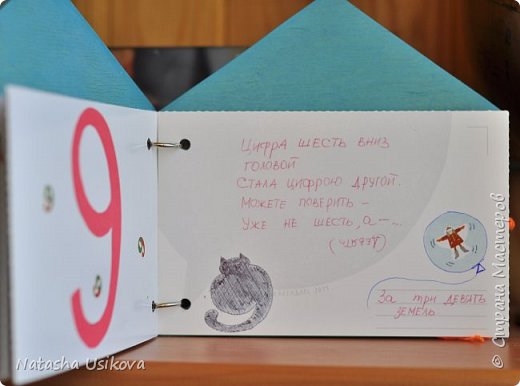 9
Цифра шесть вниз
головой
Стала цифрою другой.
Можете поверить –
Уже не шесть, а – ..
(девять)
За три девять
земель
Natasha Usikova
© Страна Мастеров